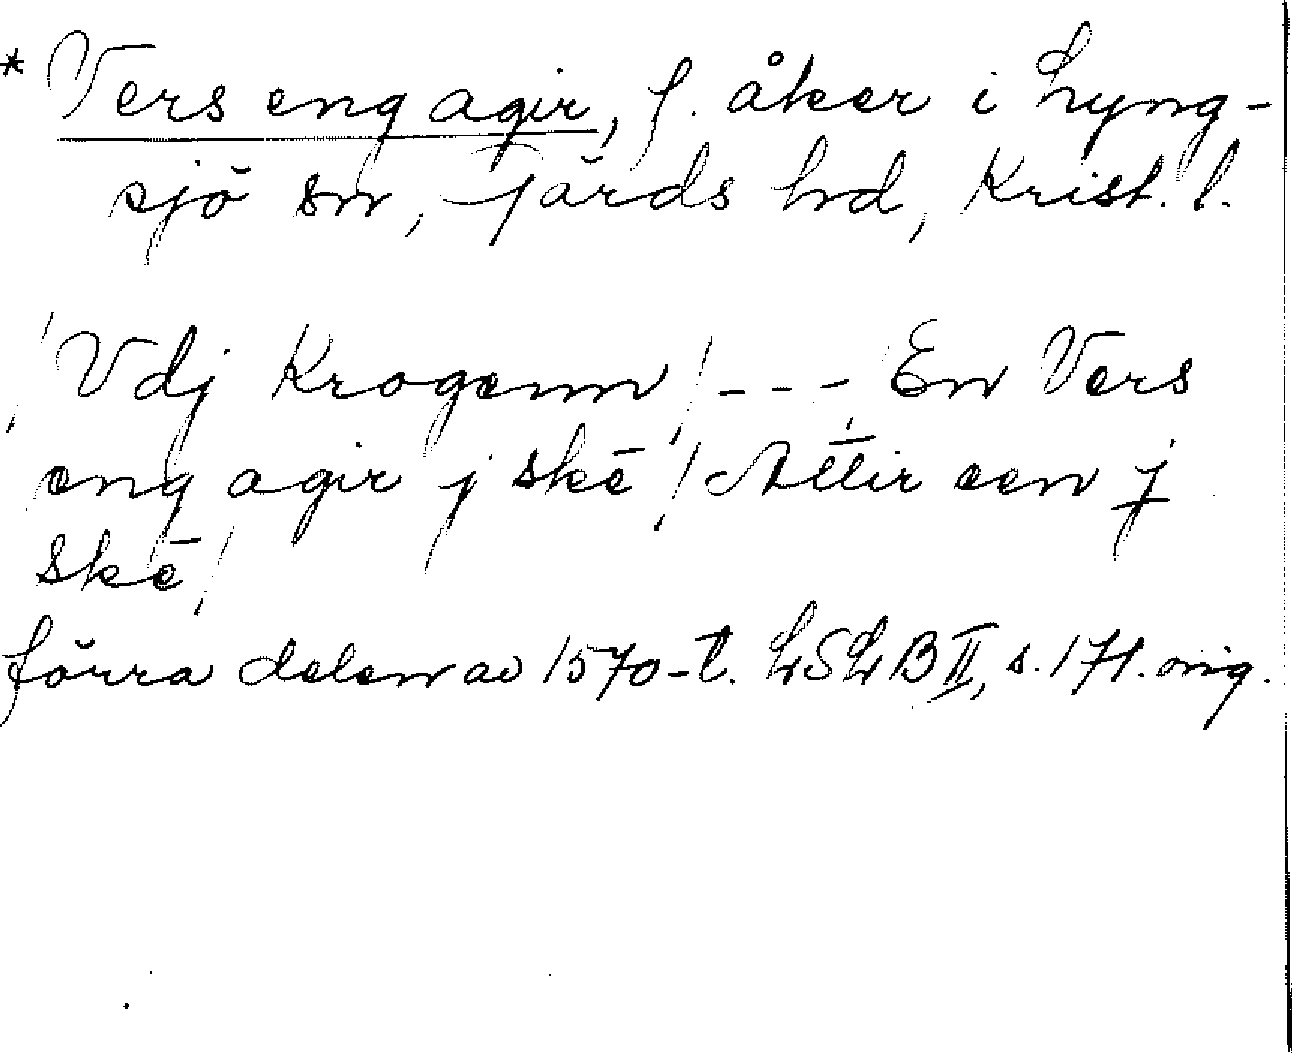 * Vers eng agir, f. åker i Lyng-
sjö sn, Gärds hd, Krist. l.
/ Vdj Krogenn / - - - / En Vers
eng agir j skē / Attir een j
skē /
förra delen av 1570-t. LSLB II, s. 171. orig.